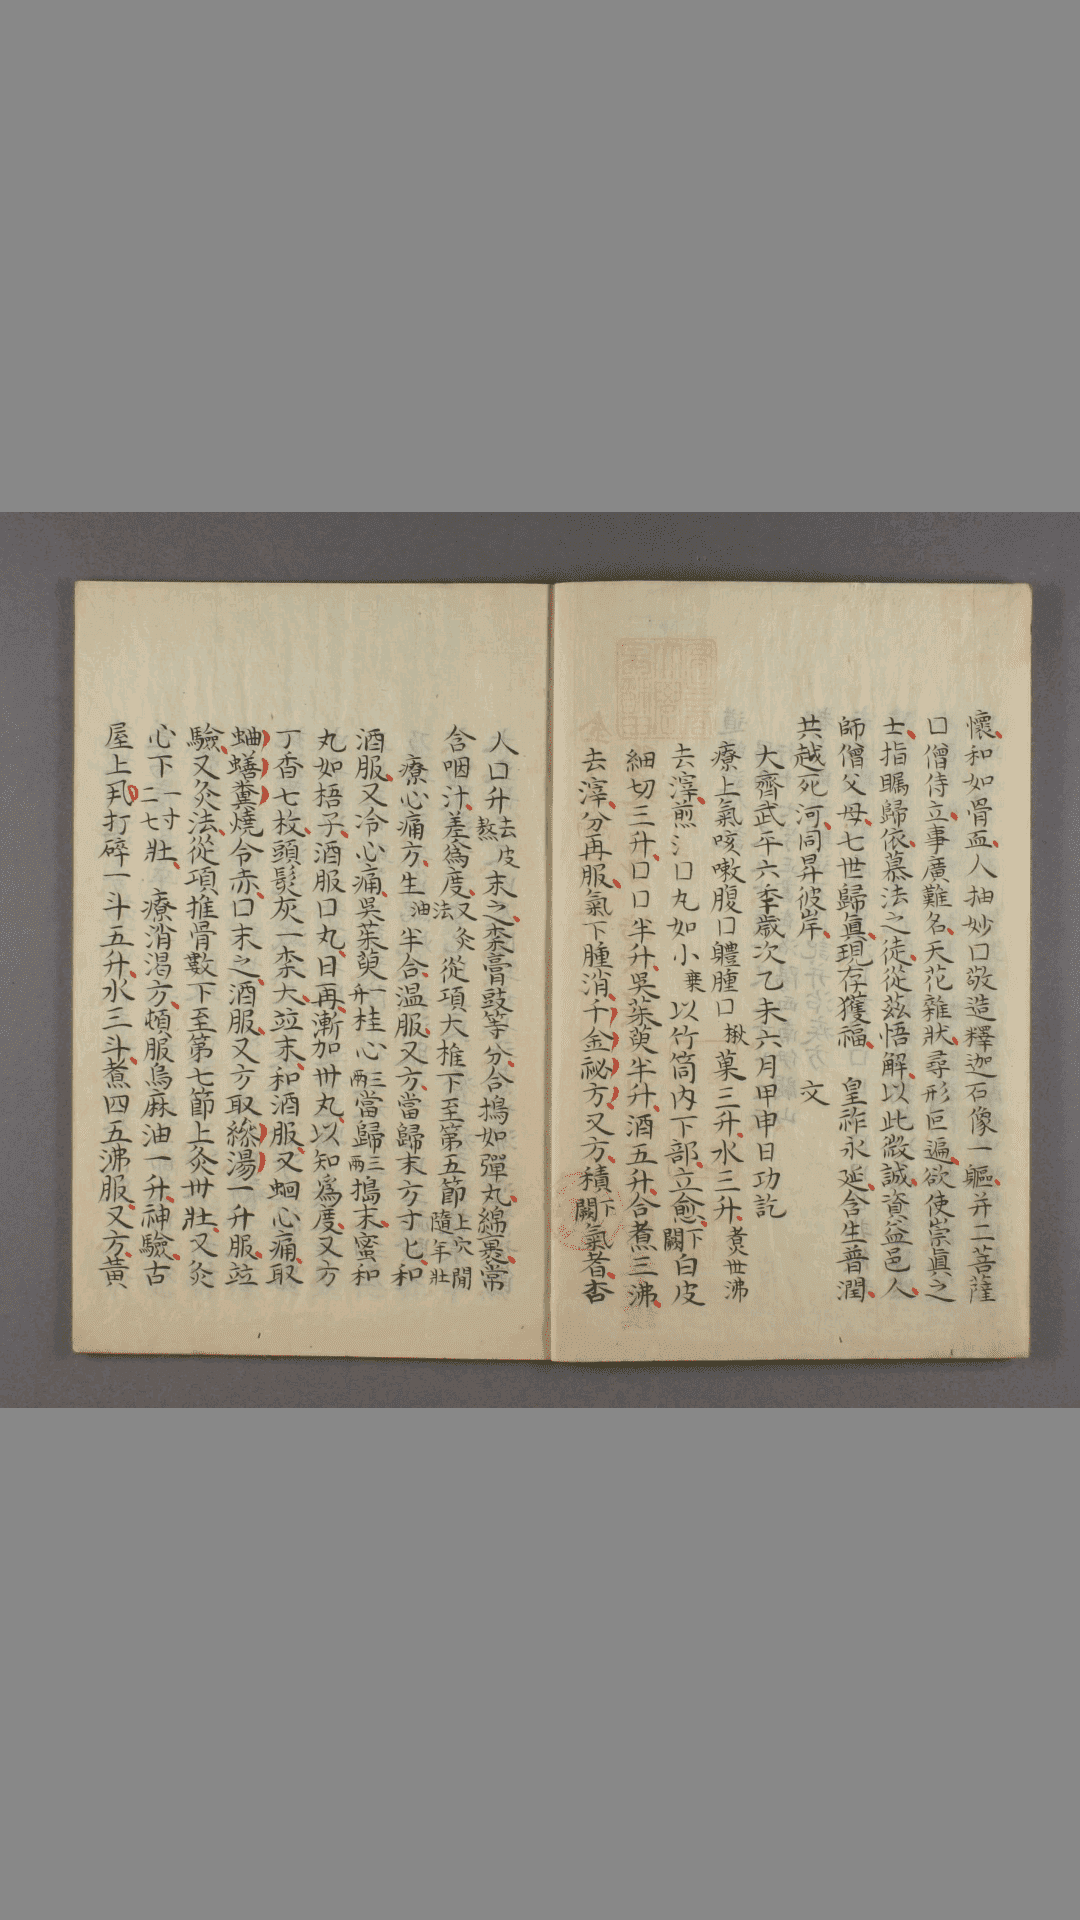 懷和如骨血人抽妙口敬造釋迦石像一軀并二菩薩
口僧侍立事廣難名天花雜狀尋形叵遍欲使崇眞之
士指矚歸依慕法之徒從茲悟解以此微誠資益邑人
師僧父母七世歸眞現存獲福 皇祚永延含生普潤
共越死河同昇彼岸 文
大齊武平六季歲次乙未六月甲申日功訖
療上氣咳嗽腹口軆腫口楸菓三升水三升煮卅沸
去滓煎氵口丸如小棗以竹筒內下部立愈下闕白皮
細切三升口口半升吳茱萸半升酒五升合煮三沸
去滓分再服氣下腫消千金祕方又方積下闕氣者杏
人口升去皮熬末之棗膏豉等分合搗如彈丸綿裹常
含咽汁差爲度又灸法從項大椎下至第五節上穴閒隨年壯
療心痛方生油半合温服又方當歸末方寸匕和
酒服又冷心痛吳茱萸一升桂心三兩當歸三兩搗末蜜和
丸如梧子酒服口丸日再漸加卅丸以知爲度又方
丁香七枚頭髮灰一棗大竝末和酒服又蛔心痛取
蚰蟮糞燒令赤口末之酒服又方取繰湯一升服竝
驗又灸法從項椎骨數下至第七節上灸卅壯又灸
心下一寸二七壯 療消渴方頓服烏麻油一升神驗古
屋上瓦打碎一斗五升水三斗煮四五沸服又方黃